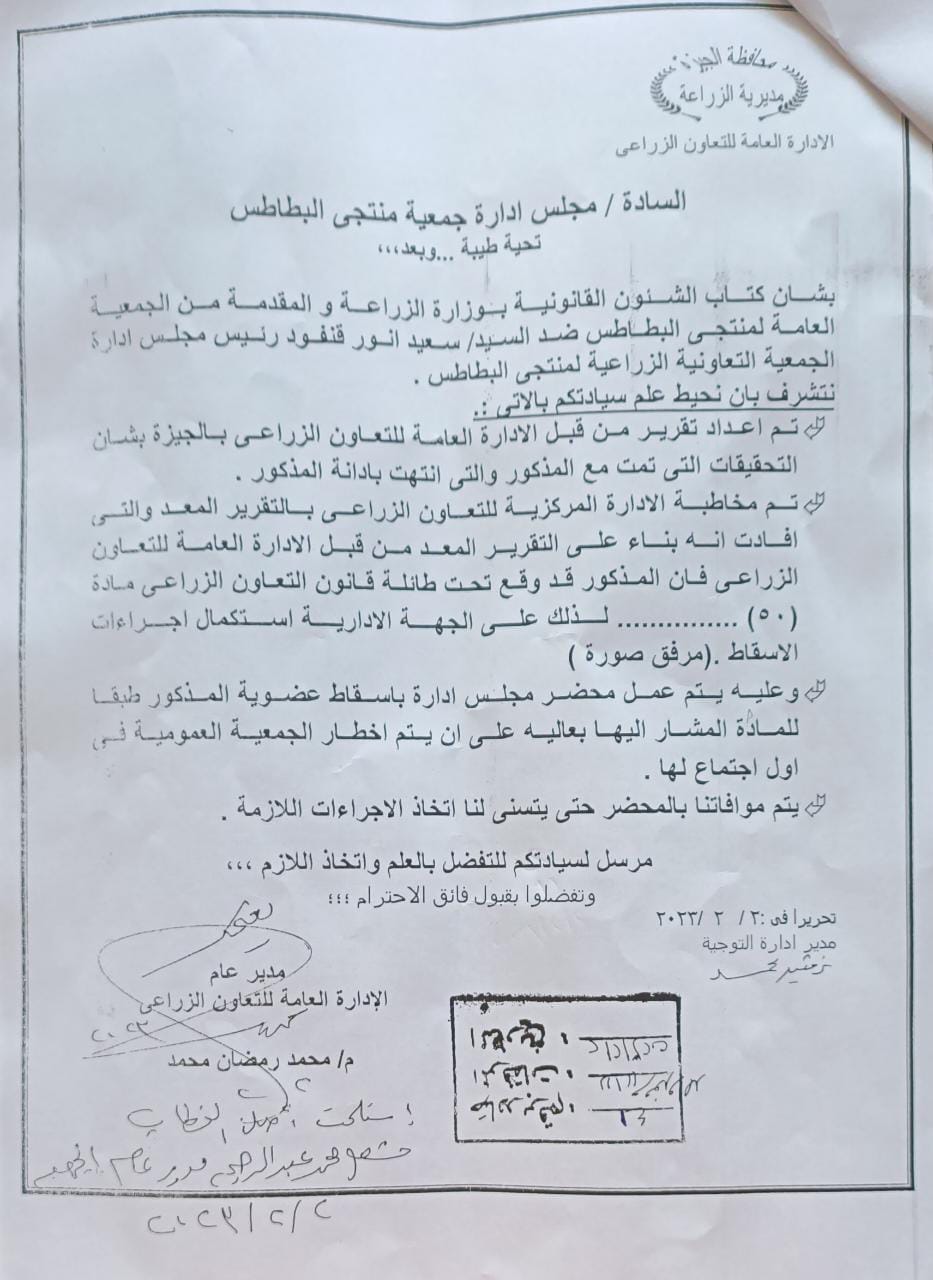 محافظة الجيزة
مديرية الزراعة
الادارة العامة للتعاون الزراعى
السادة / مجلس ادارة جمعية منتجى البطاطس
تحية طيبة ...وبعد،،،
بشان كتاب الشئون القانونية بوزارة الزراعة و المقدمة من الجمعية
العامة لمنتجى البطاطس ضد السيد/ سعيد انور قنفود رئيس مجلس ادارة
الجمعية التعاونية الزراعية لمنتجى البطاطس .
نتشرف بان نحيط علم سيادتكم بالاتى :.
تم اعداد تقرير من قبل الادارة العامة للتعاون الزراعى بالجيزة بشان
التحقيقات التى تمت مع المذكور والتى انتهت بادانة المذكور .
تم مخاطبة الادارة المركزية للتعاون الزراعى بالتقرير المعد والتى
افادت انه بناء على التقرير المعد من قبل الادارة العامة للتعاون
الزراعى فان المذكور قد وقع تحت طائلة قانون التعاون الزراعى مادة
(٥٠) .............. لذلك على الجهة الادارية استكمال اجراءات
الاسقاط .(مرفق صورة )
وعليه يتم عمل محضر مجلس ادارة باسقاط عضوية المذكور طبقا
للمادة المشار اليها بعاليه على ان يتم اخطار الجمعية العمومية فى
اول اجتماع لها .
يتم موافاتنا بالمحضر حتى يتسنى لنا اتخاذ الاجراءات اللازمة .
مرسل لسيادتكم للتفضل بالعلم واتخاذ اللازم ،،،
وتفضلوا بقبول فائق الاحترام ؛؛؛
تحريرا فى :٢ / ٢ /٢٠٢٣
مدير ادارة التوجية
مدير عام
الإدارة العامة للتعاون الزراعى
٢٠٢٣
م/ محمد رمضان محمد
صادر برقم :
المرفقات :
التاريخ :
إستلمت أصل الخطاب
محمد عبد الرحمن مدير عام الجمعية
٢٠٢٣/٢/٢